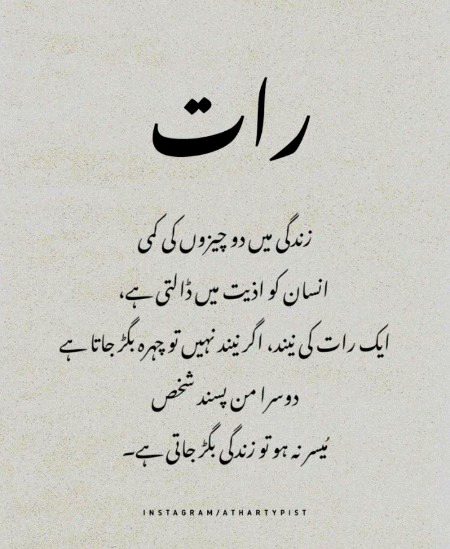 رات
زندگی میں دو چیزوں کی کمی
انسان کو اذیت میں ڈالتی ہے،
ایک رات کی نیند، اگر نیند نہیں تو چہرہ بگڑ جاتا ہے
دوسرا من پسند شخص
مُیسر نہ ہو تو زندگی بگڑ جاتی ہے۔
INSTAGRAM/ATHARTYPIST